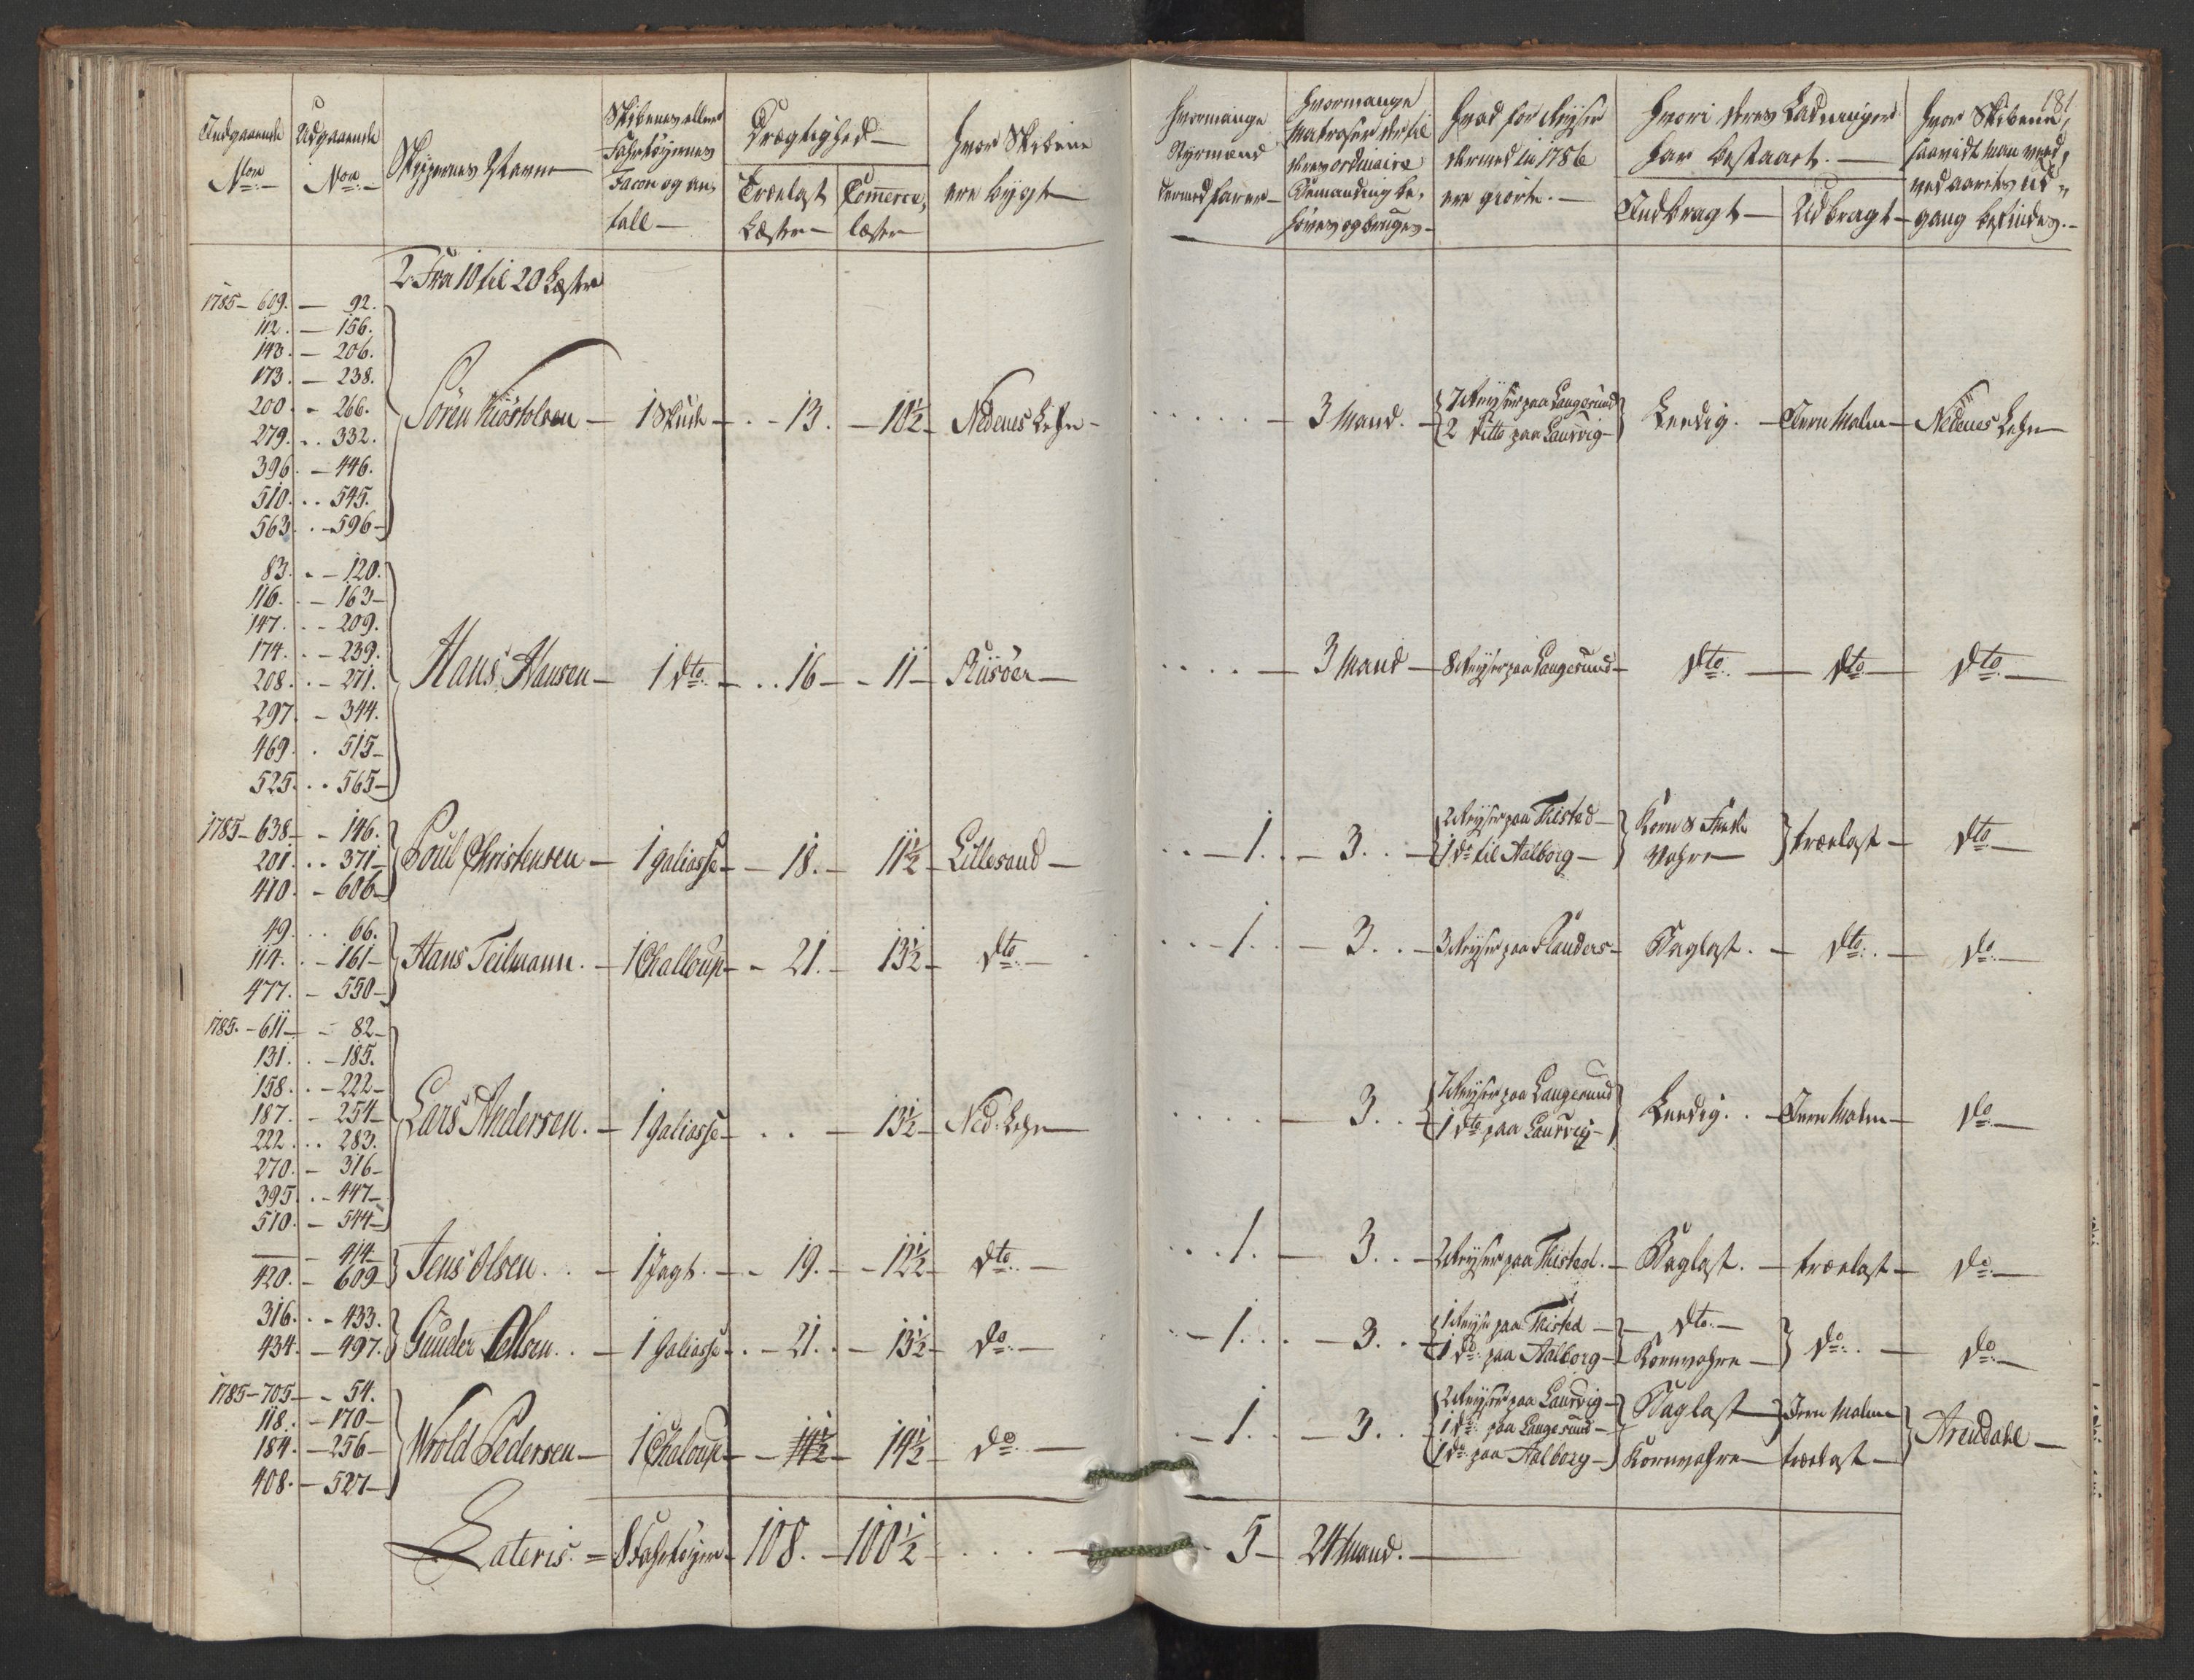 Indgaaende Nre — Udgaaende Nre — Skippernes Navne — Skibenes eller Fahrtøyernes Facon og antall — Drægtighed — Trælast Læster — Commerce læster — hvor Skibene ere bygt
hvormange Styrmænd dermed farer — hvormange Matroser dertil deres ordinaire Bemanding behøves og bruges — hvad for Reyser dermed in 1786 ere giorte. — hvori deres Ladninger har bestaaet. — Indbragt — Udbragt — hvor Skibene, saavidt man veed, ved aarets udgang befindes. —
181
2. Fra 10 til 20 Læster
1785 — 609. — 92.
112. — 156.
143. — 206.
173. — 238.
200. — 266.
279. .. 332.
396. — 446.
510. .. 545.
563. . — 596 —
Sören Kiöstolsen — 1 Skude — .. 13. — 10½ — Nedenes Lehn — ..... — 3 Mand. — 7 Reyser paa Langesund 2 ditto paa Laurvig — Leedig. — Jern Malm — Nedenes Lehn —
83. . — 120.
116. . — 163 —
147. . — 209.
174. . — 239.
208. . — 271.
297. — 344.
469. . 515 —
525. . . 565 —
Hans Hansen — 1 dto — .. 16 — . 11 — Riisöer — .... — 3 Mand — 8 Reyser paa Langesund — dto — dto — dto —
1785 — 638 — . 146.
201. . . 371 —
410. — 606 —
Poul Christensen — 1 Galiasse — — 18. — 11½ — Lillesand — .. — 1. . — 3. . — 2 Reyser paa Thisted — 1 do til Aalborg — Korn & Vahre — trælast — dto —
49. . . 66.
114. . — 161 —
477. — 550 —
Hans Teilmann. — 1 Challoup — — 21. — 13½ — dto. — ... — 1. . — 3. . — 3 Reyser paa Flanders — Baglast. — dto. . — do —
1785. — 611 — — 82 —
131. . — 185.
158. . — 222 —
187. — 254 —
222. . . 283.
270. — 316 —
395. . — 447 —
510. — 544 —
Lars Andersen. — 1 Galiasse — . . — 13½ — Ned: Lehn — .... — 3. . — 7 Reyser paa Langesund 1 dto paa Laurvig — Leedig. . — Jern Malm — do —
— — 414
420. — 609
Jens Olsen. . — 1 Jagt. — — 19. — — 12½ — dto. — ... 1. — 3. . — 2 Reyser paa Thisted. — Baglast. — trælast — do —
316. . — 433.
434. — 497.
Gunder Olsen. . — 1 Galiasse — . — 21. . — 13½ — do. — . — 1. . . — 3. . — 1 Reyse paa Thisted — 1 do. paa Aalborg — dto. — Kornvahre — do. . — do —
1785 — 705 — — 54.
118. . — 170 —
184. — 256 —
408. — 527 —
Wrold Pedersen — 1 Chaloup — — 14½ — 14½ — do. — . — 1. . — 3. . 2 Reyser paa Laurvig — 1 do. paa Langesund — 1 do. paa Aalborg — Baglast — Kornvahre — Jern Malm trælast — Arendahl —
Lateris. = 8 Fahrtøyer — 108. — 100½ — . . . — 5 — 24 Mand. —